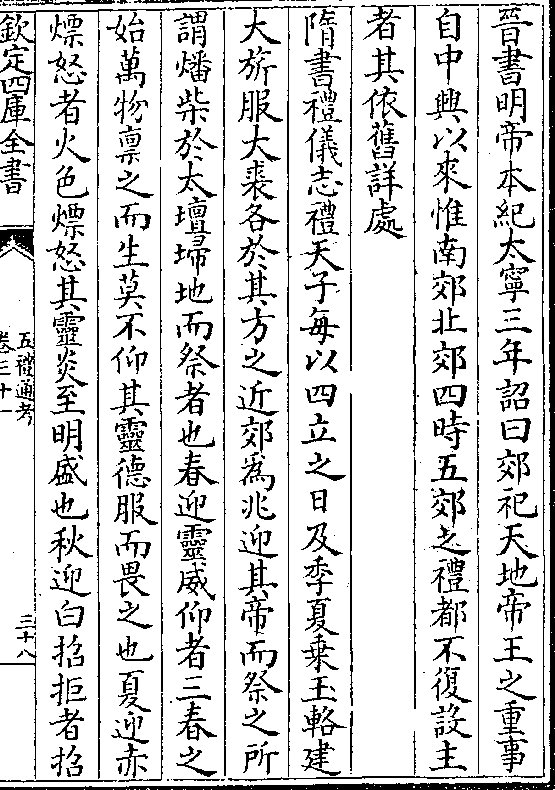 晉書明帝本紀太寧三年詔曰郊祀天地帝王之重事
自中興以來惟南郊北郊四時五郊之禮都不復設主
者其依舊詳處
隋書禮儀志禮天子每以四立之日及季夏乗玉輅建
大旂服大裘各於其方之近郊為兆迎其帝而祭之所
謂燔柴於太壇埽地而祭者也春迎靈威仰者三春之
始萬物禀之而生莫不仰其靈德服而畏之也夏迎赤
熛怒者火色熛怒其靈炎至明盛也秋迎白招拒者招
欽定四庫全書
五禮通考
卷三十一
三十八